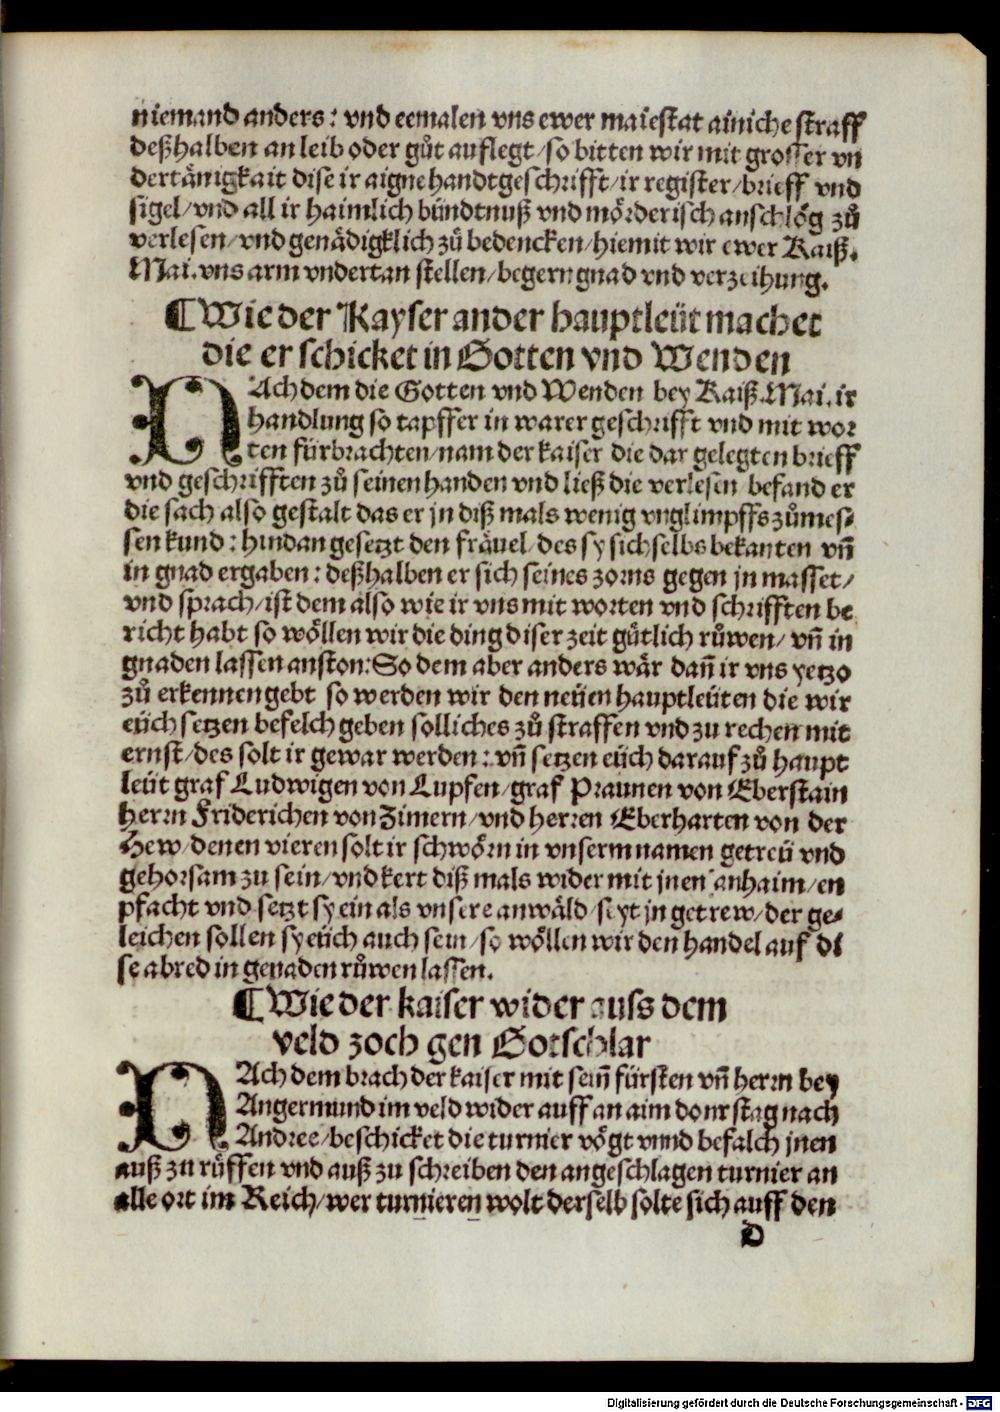 niemand anders: vnd eemalen vns ewer maiestat ainiche straff
deßhalben an leib oder gůt auflegt/so bitten wir mit grosser vn
dertånigkait dise ir aigne handtgeschrifft/ir register/brieff vnd
sigel/vnd all ir haimlich bündtnuß vnd mörderisch anschlög zů
verlesen/vnd genådigklich zů bedencken/hiemit wir ewer Kaiß.
Mai. vns arm vndertan stellen/begern gnad vnd verzeihung.
¶Wie der Kayser ander hauptleüt machet
die er schicket in Gotten vnd Wenden
NAch dem die Gotten vnd Wenden bey Kaiß.Mai. ir
handlung so tapffer in warer geschrifft vnd mit wor
ten fürbrachten/nam der kaiser die dar gelegten brieff
vnd geschrifften zů seinen handen vnd ließ die verlesen befand er
die sach also gestalt das er jn diß mals wenig vnglimpffs zůmes⸗
sen kund: hindan gesetzt den fråuel/des sy sich selbs bekanten vñ
in gnad ergaben: deßhalben er sich seines zorns gegen jn masset/
vnd sprach/ist dem also wie ir vns mit worten vnd schrifften be
richt habt so wöllen wir die ding diser zeit gůtlich růwen/vñ in
gnaden lassen anston: So dem aber anders wår dañ ir vns yetzo
zů erkennen gebt so werden wir den neüen hauptleüten die wir
eüch setzen befelch geben solliches zů straffen vnd zu rechen mit
ernst/des solt ir gewar werden: vñ setzen eüch darauf zů haupt
leüt graf Ludwigen von Lupfen/graf Praunen von Eberstain
herrn Friderichen von Zimern/vnd herren Eberharten von der
Hew/denen vieren solt ir schwörn in vnserm namen getreü vnd
gehorsam zu sein/vnd kert diß mals wider mit jnen anhaim/en
pfacht vnd setzt sy ein als vnsere anwåld/seyt jn getrew/der ge⸗
leichen sollen sy eüch auch sein/so wöllen wir den handel auf di
se abred in genaden růwen lassen.
¶Wie der kaiser wider auss dem
veld zoch gen Gotschlar
NAch dem brach der kaiser mit seiñ fürsten vñ herrn bey
Angermund im veld wider auff an aim donrstag nach
Andree/beschicket die turnier vögt vnnd befalch jnen
auß zu rüffen vnd auß zu schreiben den angeschlagen turnier an
alle ort im Reich/wer turnieren wolt derselb solte sich auff den
D
Digitalisierung gefördert durch die Deutsche Forschungsgemeinschaft - DFG